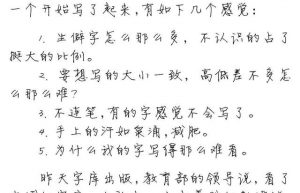 一个开始写了起来，有如下几个感觉：
1. 生僻字怎么那么多，不认识的占了
挺大的比例。
2. 要想写的大小一致，高低差不多怎
么那么难？
3. 不连笔，有的字感觉不会写了。
4. 手上的汗如菜油，减肥。
5. 为什么我的字写得那么难看。
昨天字库出版，教育部的领导说，看了